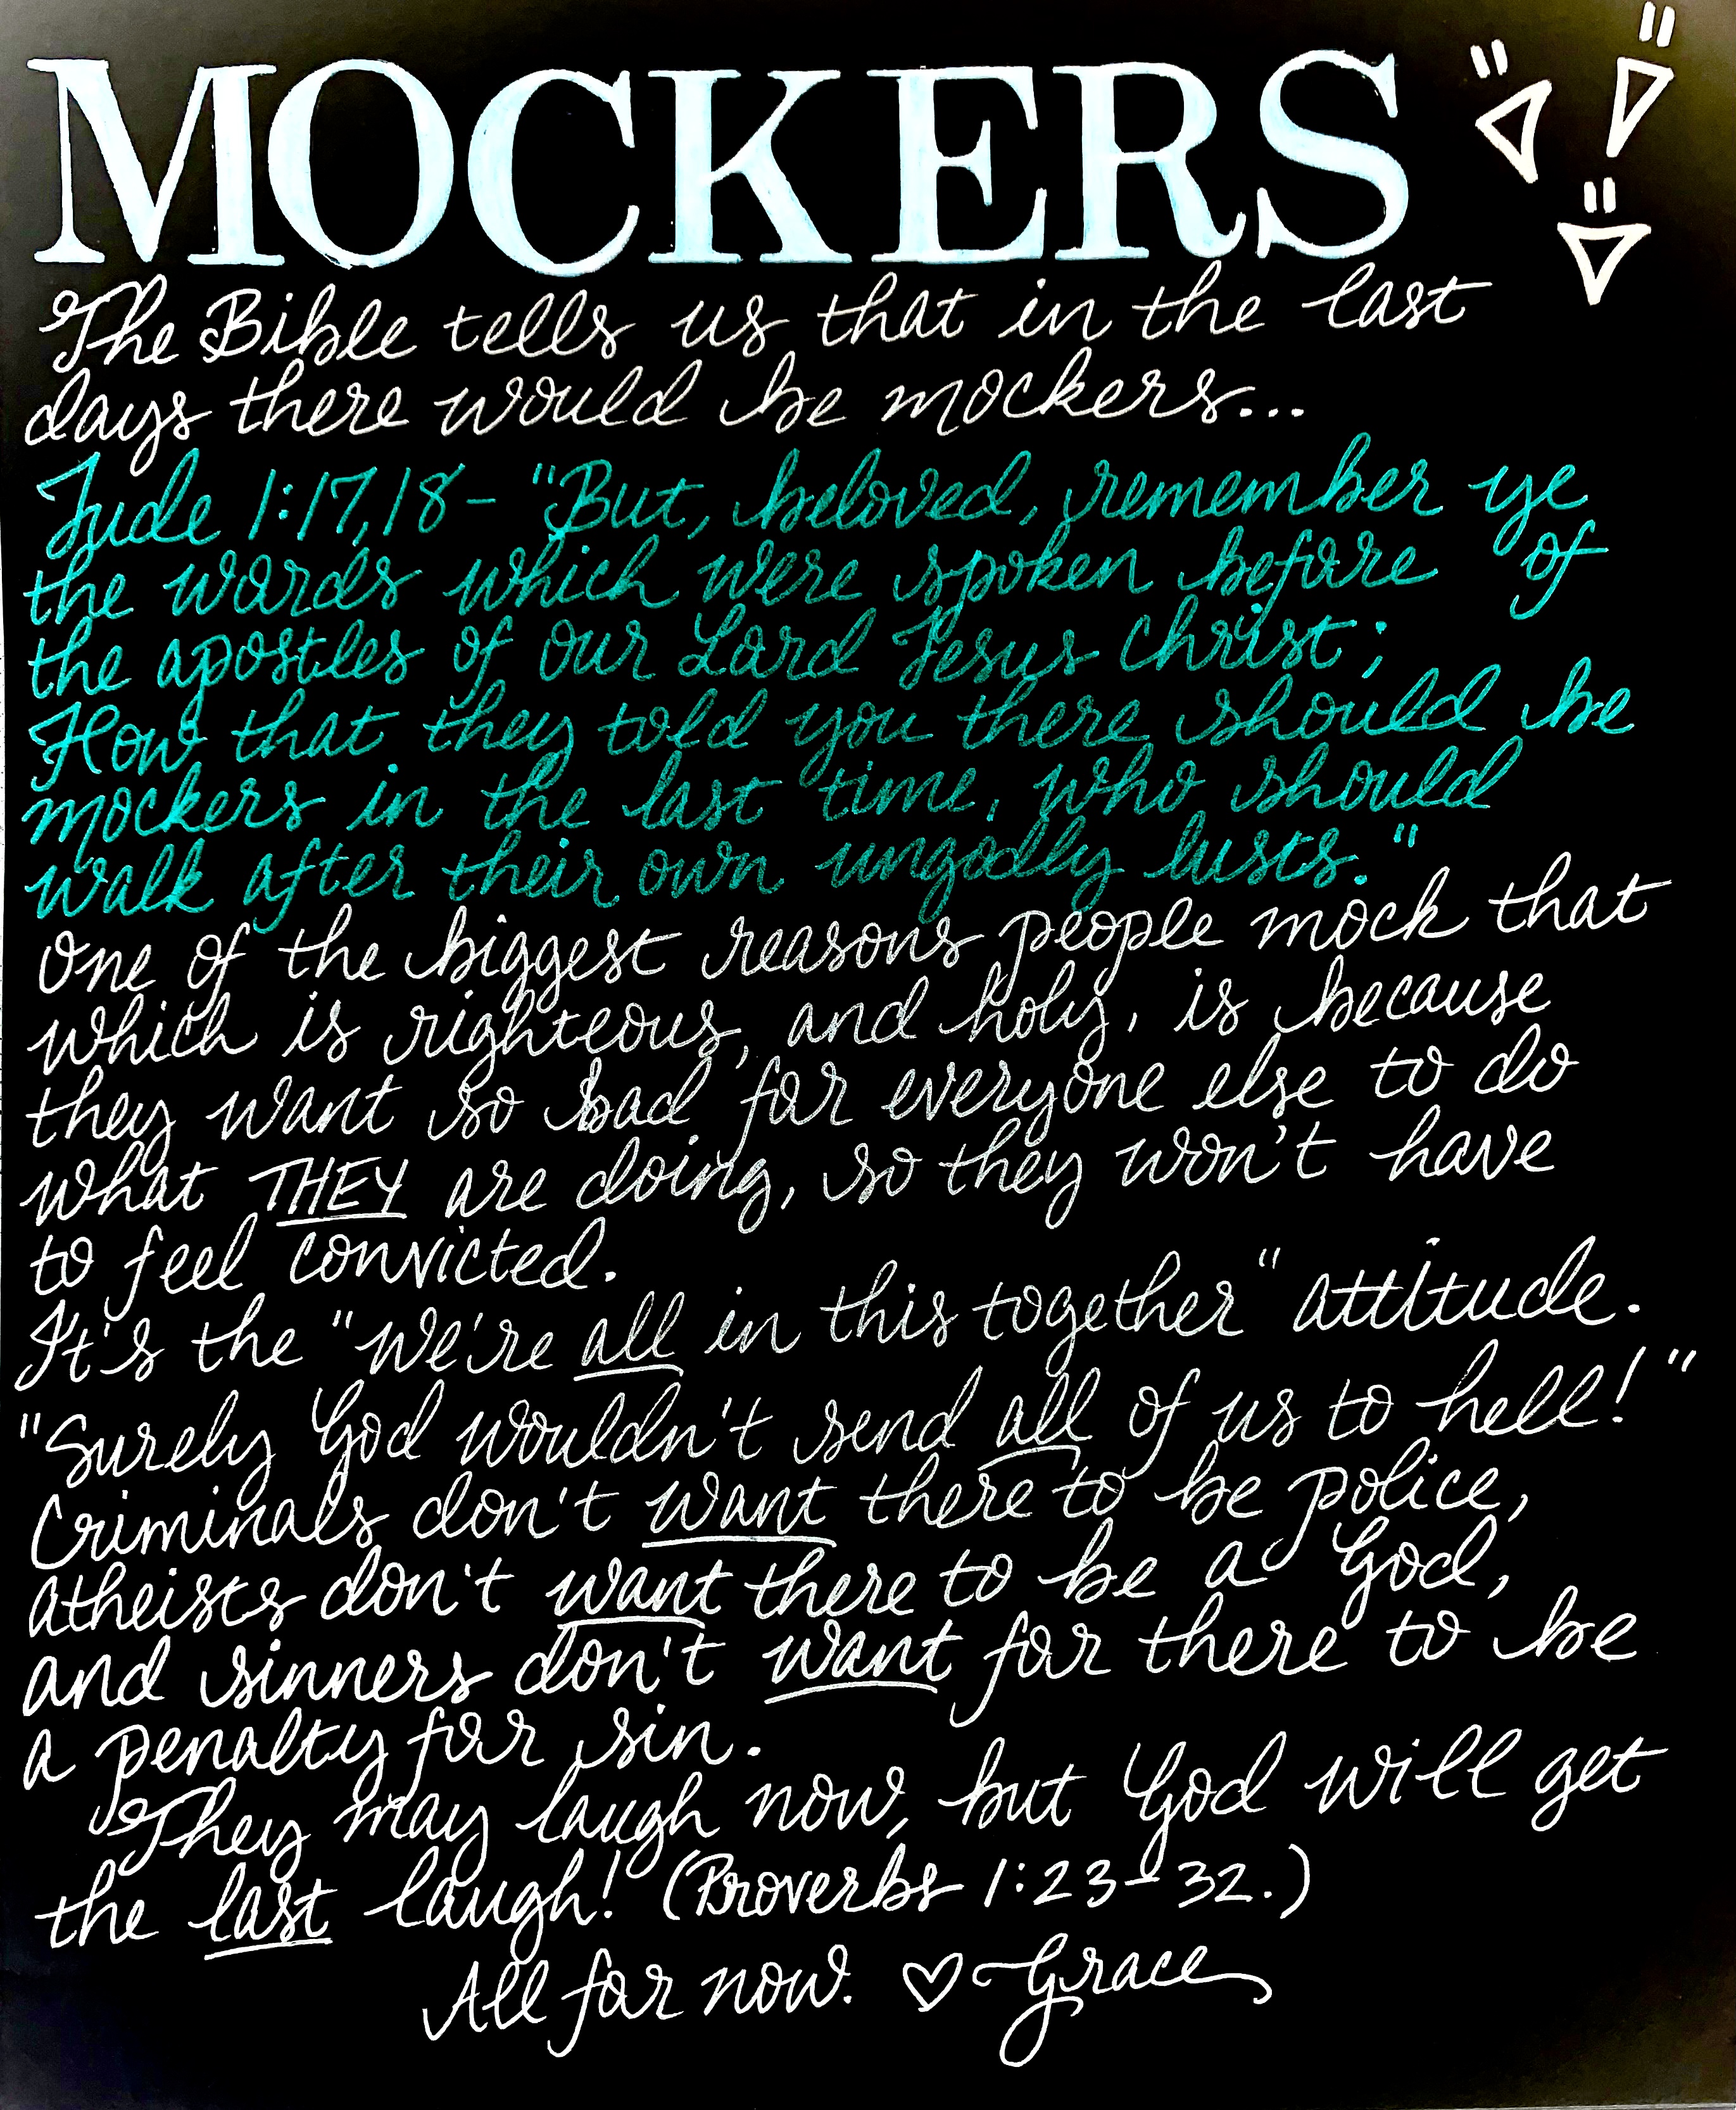 MOCKERS
The Bible tells us that in the last
days there would be mockers...
Jude 1:17,18- "But, beloved, remember ye
the words which were spoken before of
the apostles of our Lord Jesus Christ;
How that they told you there should be
mockers in the last time, who should
walk after their own ungodly lusts."
One of the biggest reasons people mock that
which is righteous, and holy, is because
they want so bad for everyone else to do
what THEY are doing, so they won't have
to feel convicted.
It's the "We're all in this together" attitude.
"Surely God wouldn't send all of us to hell!"
Criminals don't want there to be police,
atheists don't want there to be a God,
and sinners don't want for there to be
a penalty for sin.
They may laugh now, but God will get
the last laugh! (Proverbs 1:23-32.)
All for now. ♡ Grace